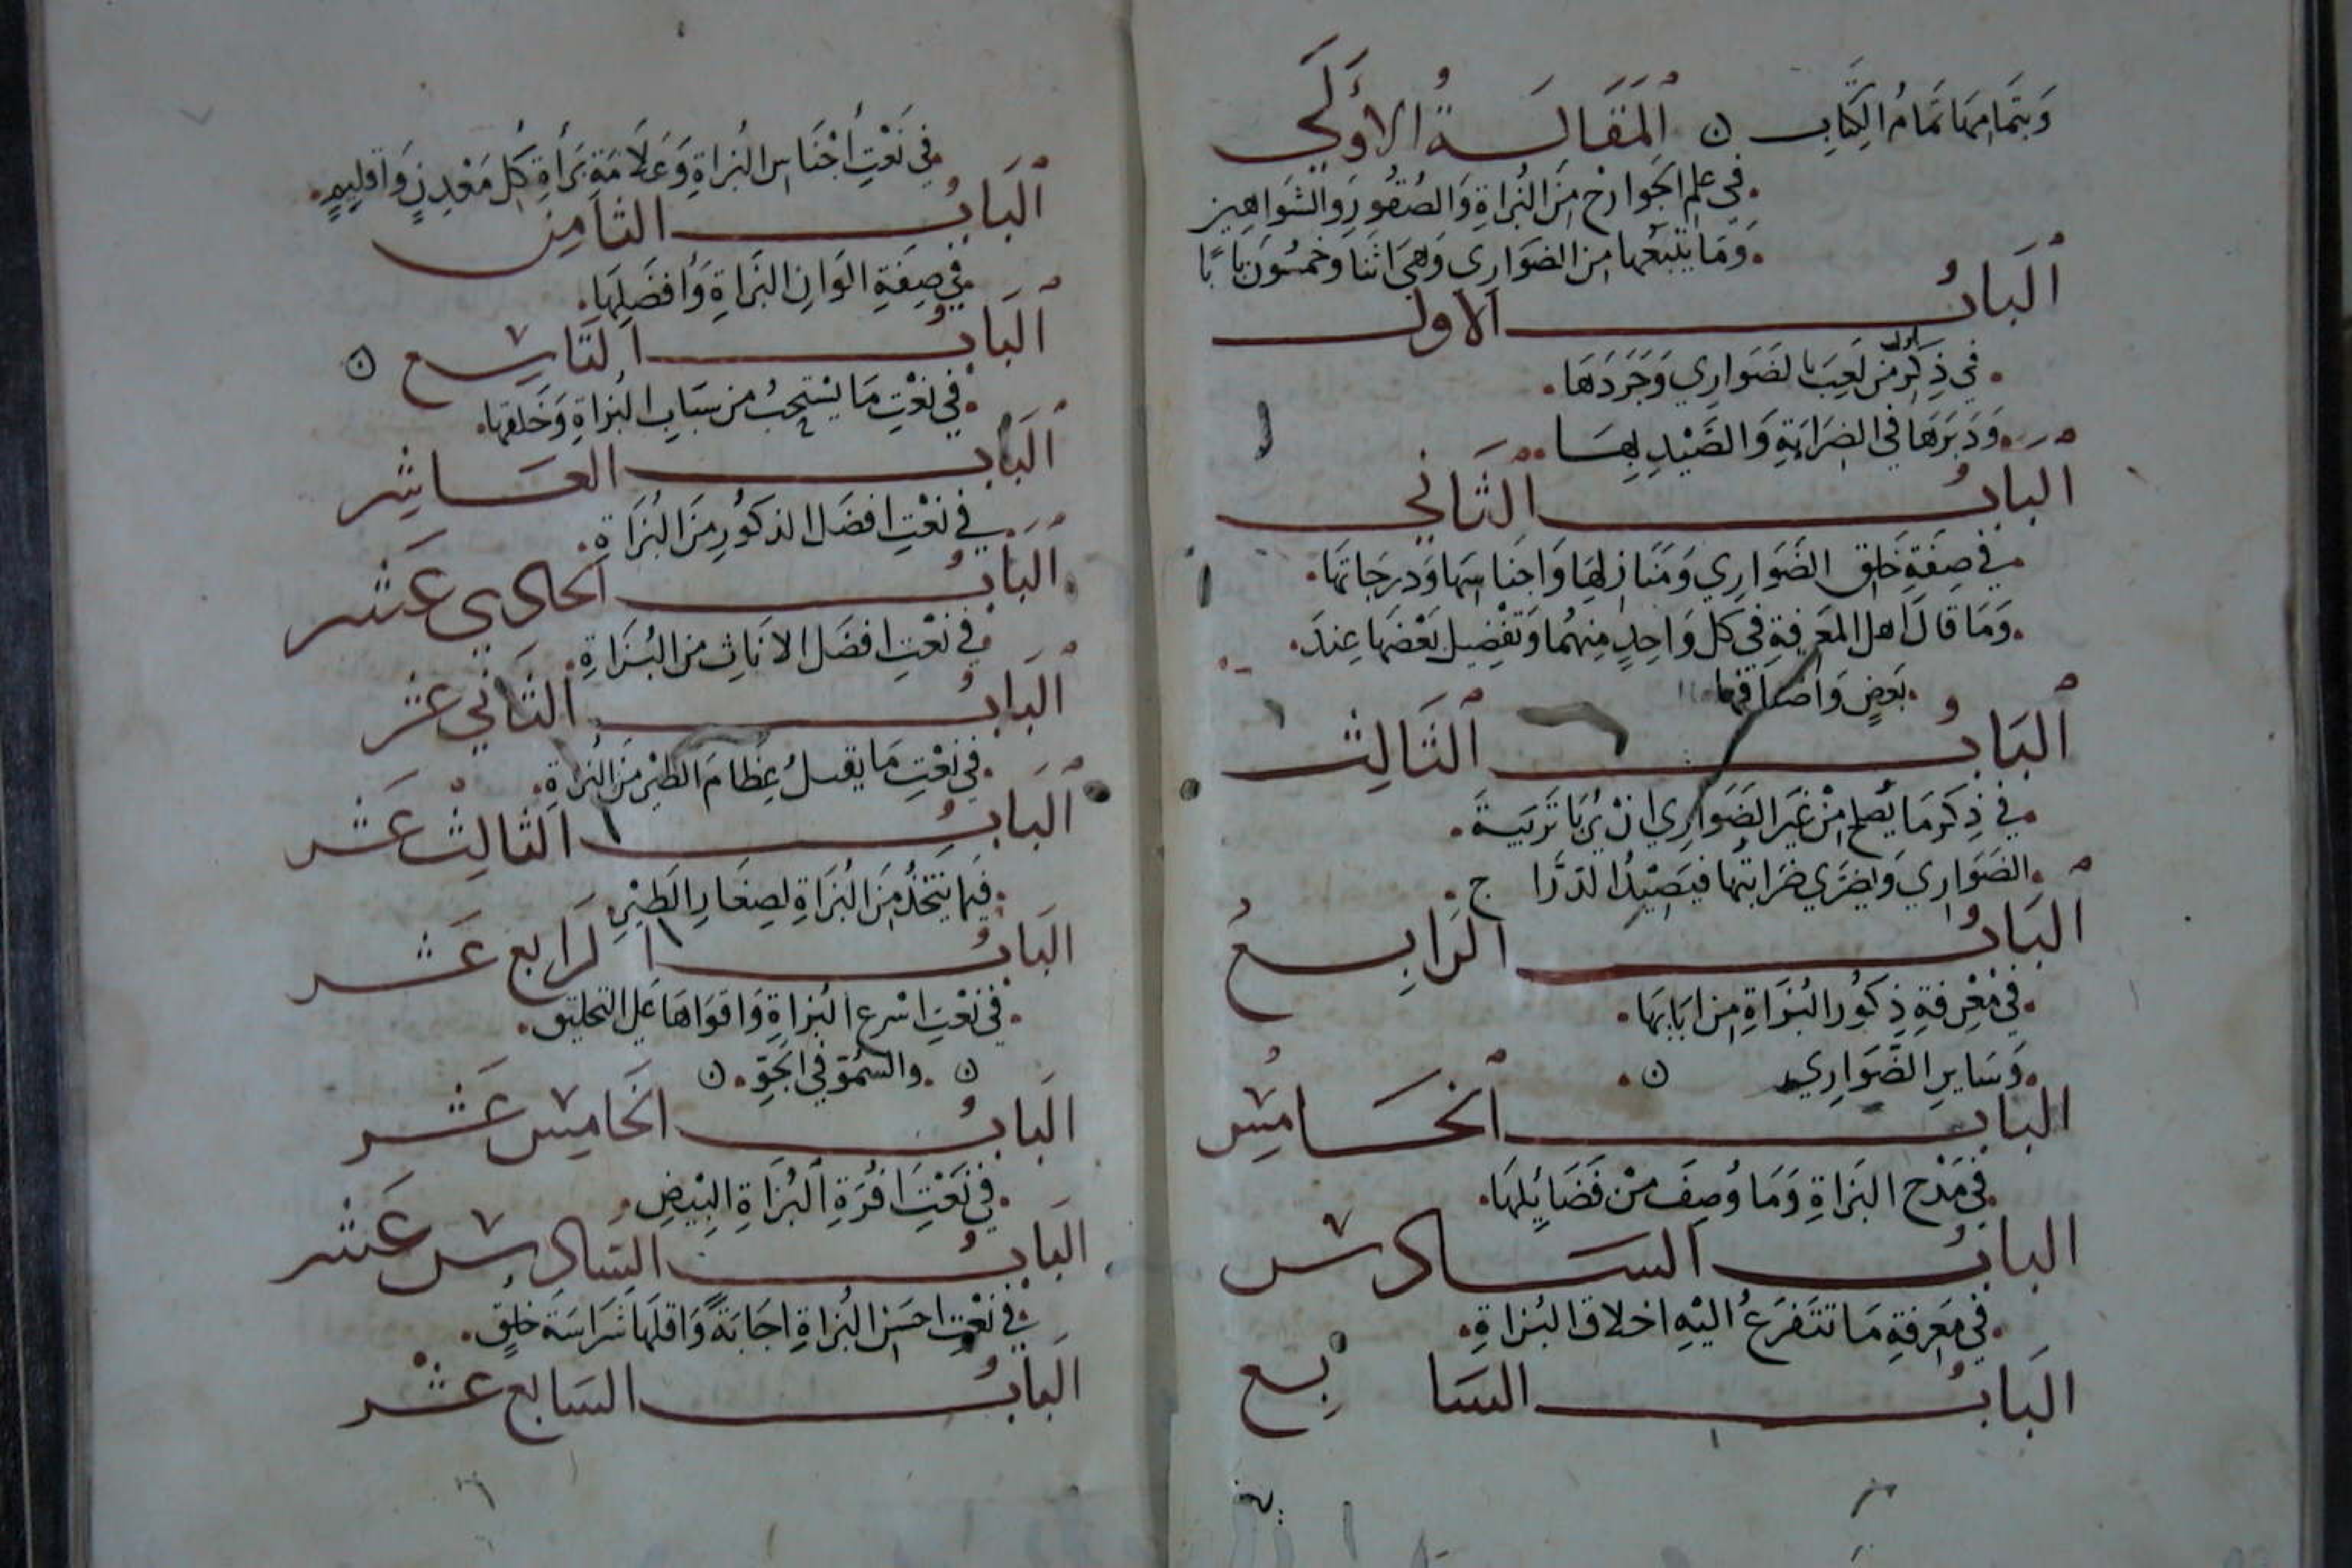 وَبِتَمَامِهَا تَمَامُ الكِتَابِ ن المَقَالَةُ الأُوْلَى
في عِلمِ الجَوارِحِ مِنَ البُزاةِ وَالصُقُورِ وَالشَوَاهِين
وَمَا يَتبَعُها مِنَ الضَوَارِي وَهيَ اثنَا وَخمسُونَ بابًا
البَابُ الأول
في ذِكرِ أول مَن لَعِبَ بالضَوَارِي وَجَرَدَهَا
وَدَبَرَهَا في الضِرَايَةِ وَالصَيْدِ بِهَا
البَابُ الثَاني
في صِفَةِ خَلقِ الضَوَارِي وَمَنَازلِهَا وَاجنَاسِهَا وَدرجَاتهَا
وَمَا قالَ اهل المَعرِفَةِ في كل وَاحِدٍ مِنهُما وَتفْضِيل بَعْضَهَا عِندَ
بَعضٍ وَاصنافها
البَابُ الثَالِث
في ذِكرِ مَا يُصلح مِنْ غَيرِ الضَوَارِي انْ يُربَّا تَربِيَةَ
الضَوَارِي وَيضرَي ضرَايتَها فيَصِيْدُ الدرَّاج
البَابُ الرَابِعُ
في مَعْرِفةِ ذِكوُر البُزَاةِ مِن انَاثهَا
وَسَايرِ الضَوَارِي ن
البَاب الخَامِسُ
في مَدْحِ البزَاةِ وَمَا وُصِفَ مِنْ فَضَائِلِهَا
البَابُ السَادس
في مَعرفةِ مَا تتَفرَعُ اليْهِ اخلاق البُزاةِ
البَابُ السَابع
في نَعْتِ أجْنَاسِ البُزاةِ وَعَلامَةِ بُزَاةِ كُل مَعْدِنٍ وَاقلِيمٍ
البَابُ الثامِن
في صِفَةِ الوَانِ البُزَاةِ وَأفضَلِهَا
البَابُ التَاسع ن
في نَعْتِ مَا يُسْتحبُ من شيات البُزاةِ وَخَلقها
البَاب العَاشِر
في نَعْتِ افضَل الذكوُرِ مِنَ البُزَاةِ
البَابُ الحادي عَشر
في نَعْتِ افضَل الانَاثِ مِنَ البُزَاةِ
البَابُ الثَاني عشر
في نَعْتِ مَا يقتل عِظَامَ الطَيْرِ مِنَ البُزاةِ
البَابُ الثالِث عَشر
فيمَا يُتَخَذُ مِنَ البُزَاةِ لصِغَارِ الطَيْرِ
البَابُ الرَابع عَشر
في نَعْتِ اسْرع البُزاةِ وَاقوَاهَا عَلى التحليق
ن والسُموّ في الجَوّ ن
البَابُ الخَامِس عَشر
في نَعْتِ افرَةِ البُزَاةِ البِيْضِ
البَابُ السَادس عَشر
في نعْت احسَن البُزاةِ اجَابَةً وَاقلَها شرَاسَةَ خلقٍ
البَابُ السَابع عشر